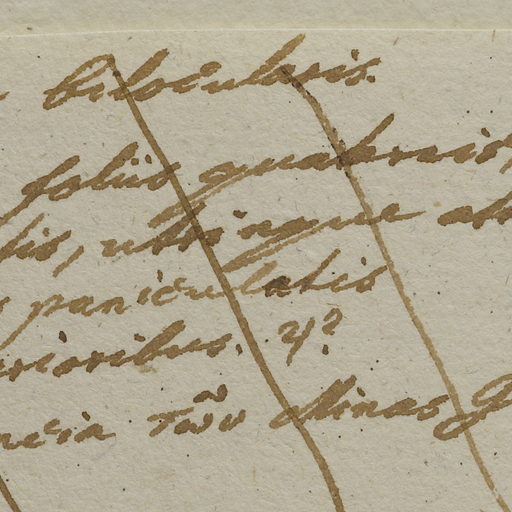 bilocularis.
foliis quaternis,
lis, utrinque
paniculatis
erioribus. ♃?
ncia Minas G